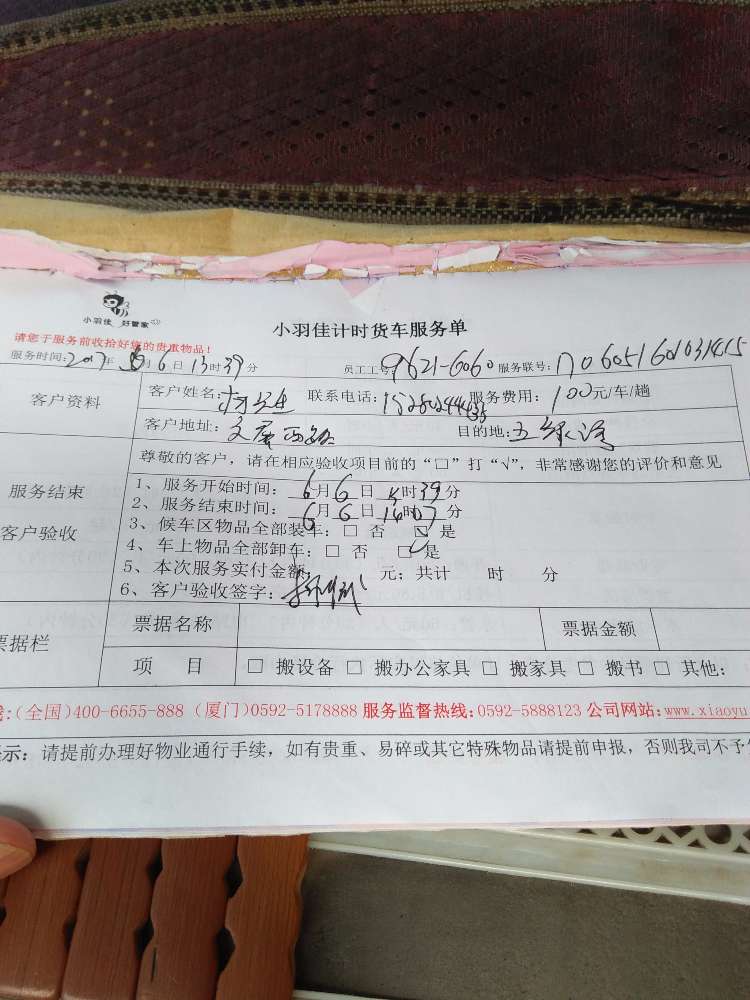 小羽佳 好管家
小羽佳计时货车服务单
请您于服务前收拾好您的贵重物品!
服务时间:2017年 6月 6日 13时39分 员工工号9621-6060 服务联号:
客户资料
客户姓名: 先生 联系电话: 服务费用:100元/车/趟
客户地址:文屏西路 目的地:五缘湾
服务结束
客户验收
尊敬的客户,请在相应验收项目前的“□”打“√”,非常感谢您的评价和意见
1、服务开始时间: 6月 6日 时39分
2、服务结束时间: 6月 6日 14时07分
3、候车区物品全部装车:□ 否 ☑ 是
4、车上物品全部卸车:□ 否 ☑ 是
5、本次服务实付金额: 元;共计 时 分
6、客户验收签字:
票据栏
票据名称 票据金额
项 目 □ 搬设备 □ 搬办公家具 □ 搬家具 □ 搬书 □ 其他:
:(全国)400-6655-888 (厦门)0592-5178888 服务监督热线:0592-5888123 公司网站:www.xiaoyu
示:请提前办理好物业通行手续,如有贵重、易碎或其它特殊物品请提前申报,否则我司不予